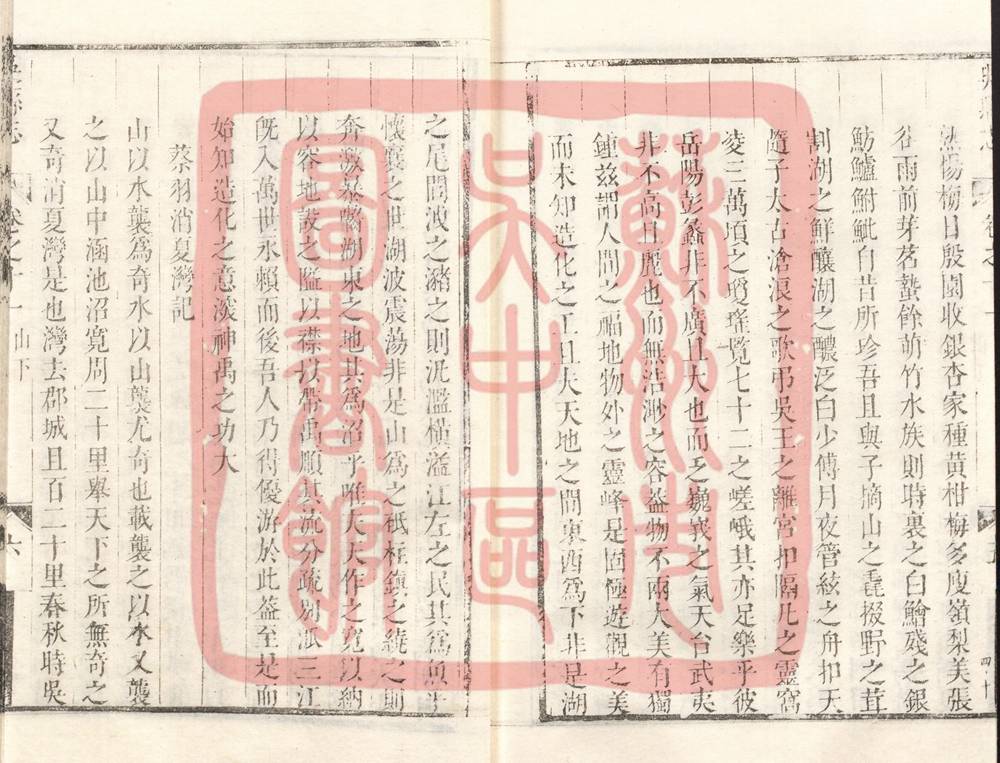 熟楊梅日殷園收銀杏家種黃柑梅多庾嶺梨美張
谷雨前芽茗蟄餘萌竹水族則時裏之白鱠殘之銀
魴鱸鮒魮自昔所珍吾且與子摘山之毳掇野之茸
割湖之鮮釀湖之醲泛白少傅月夜管絃之舟扣天
隨子太古滄浪之歌弔吳王之離宮扣隔凡之靈窩
凌三萬頃之瓊瑤覽七十二之嵯峨其亦足樂乎彼
岳陽彭蠡非不廣且大也而乏巍峩之氣天台武夷
非不高且麗也而無浩渺之容葢物不兩大美有獨
鍾茲謂人間之福地物外之靈峰是固極遊觀之美
而未知造化之工且夫天地之間東西為下非是湖
之尾閭波之瀦之則汎濫橫溢江左之民其為魚乎
懷襄之世湖波震蕩非是山為之祗柱鎮之繞之則
奔激暴囓湖東之地其為沼乎唯天大作之寬以納
以容地設之隘以襟以帶禹順其流分疏別派三江
旣入萬世永賴而後吾人乃得優游於此葢至是而
始知造化之意深神禹之功大
蔡羽消夏灣記
山以水襲為奇水以山襲尤奇也載襲之以水又襲
之以山中涵池沼寬周二十里舉天下之所無奇之
又奇消夏灣是也灣去郡城且百二十里春秋時吳
卷之十一 山下
六
蘇州市
吳中區
圖書館